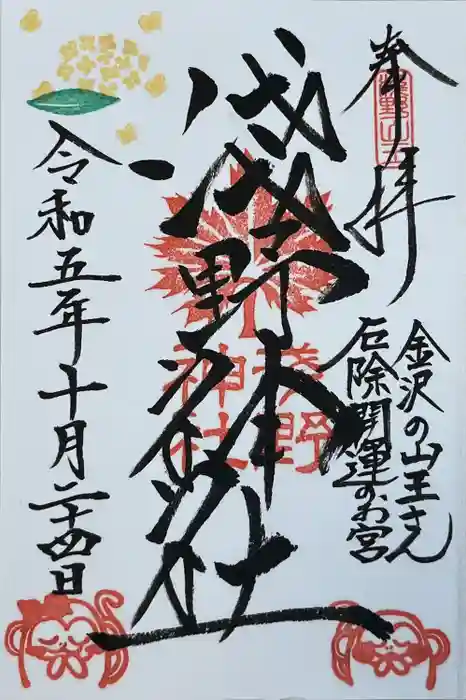 奉拝
金沢の山王さん
厄除開運のお宮
浅野神社
浅野神社
令和五年十月二十四日